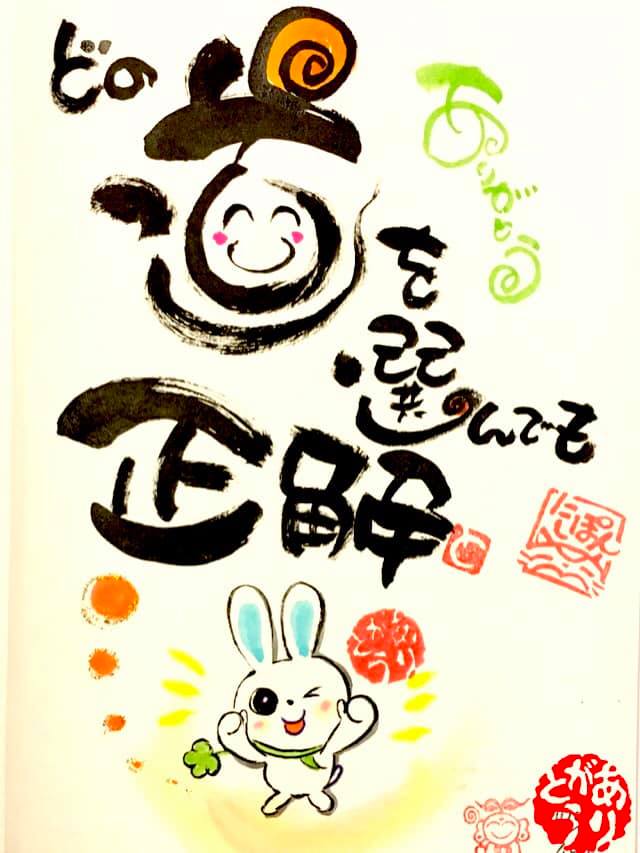 どの
道
を
選んでも
正解
ありがとう
ありがとう